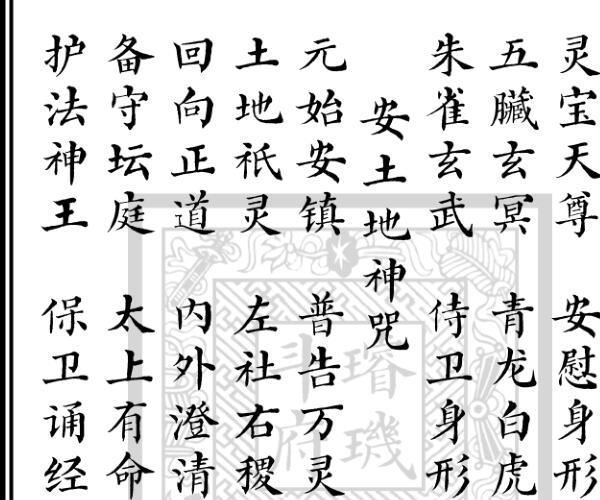 灵宝天尊 安慰身形
五臟玄冥 青龙白虎
朱雀玄武 侍卫身形
安土地神咒
元始安镇 普告万灵
土地祇灵 左社右稷
回向正道 内外澄清
备守坛庭 太上有命
护法神王 保卫诵经
璿璣
斗府